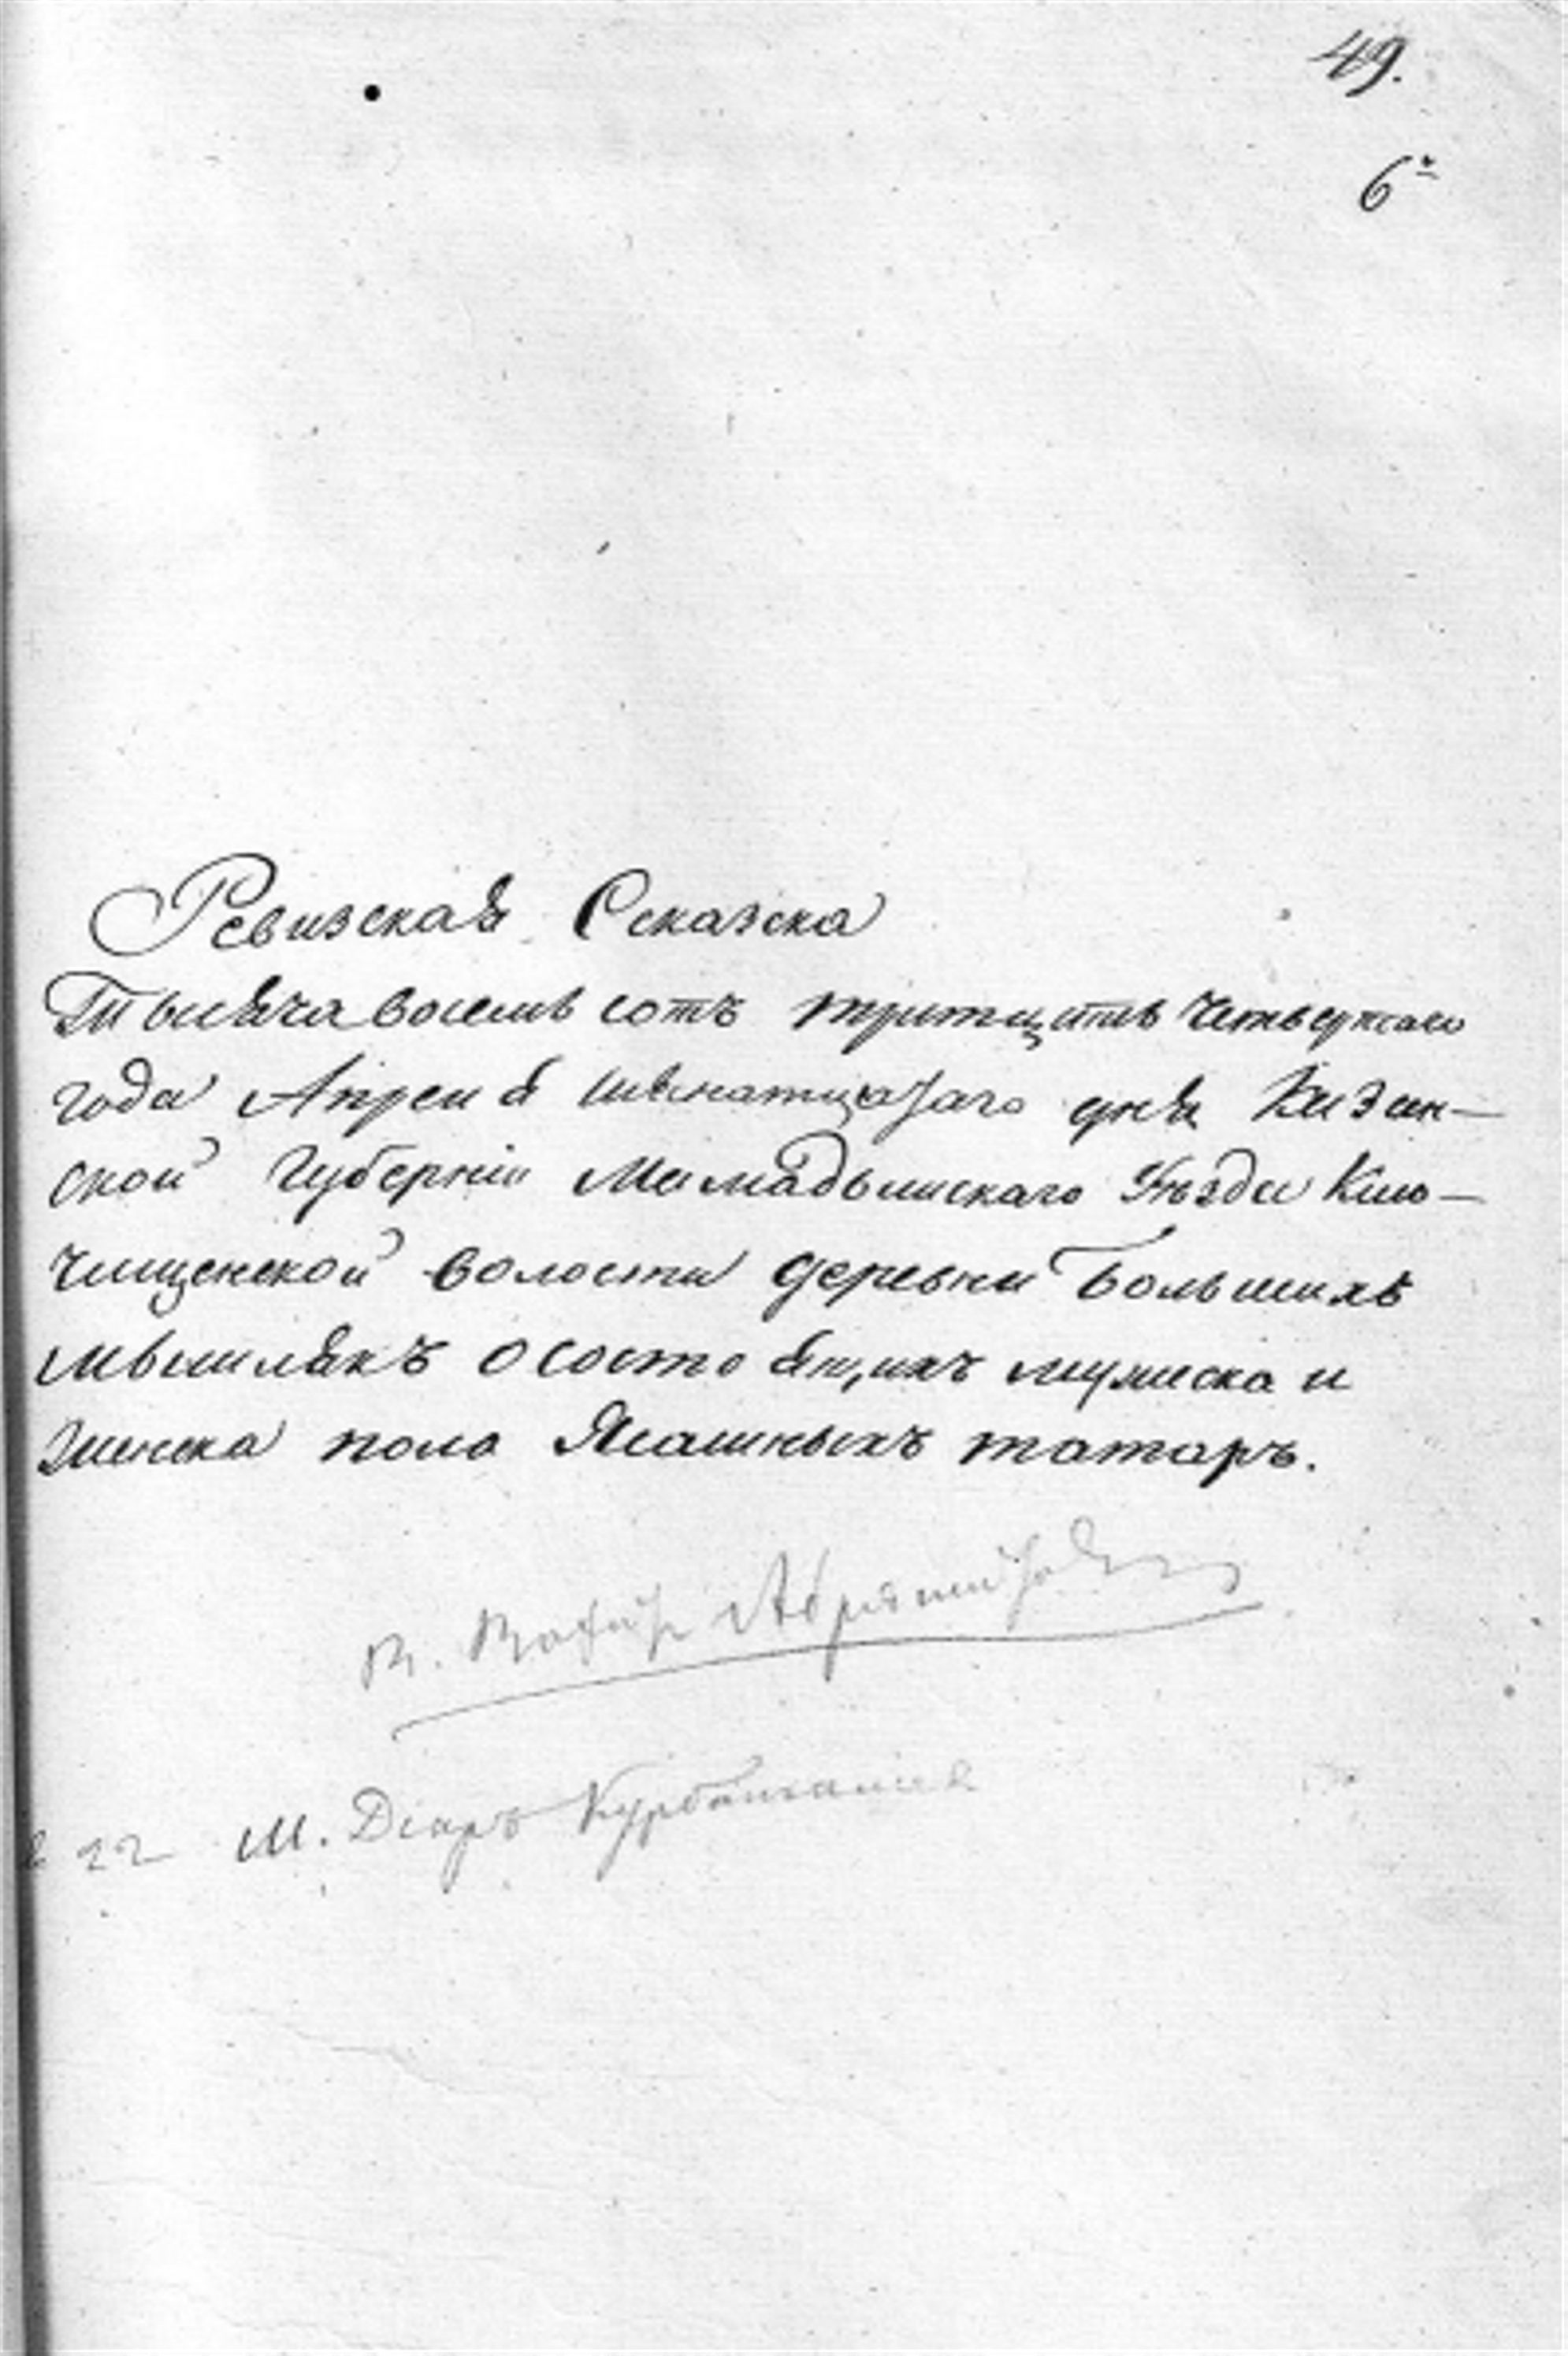 49.
6
Ревизская Сказска
Тысяча восемь сотъ тритцать четвертаго
года Апреля дня Казан-
ской Губерніи Мамадышскаго Уѣзда Клю-
чищенской волости деревни Большихъ
Мышлякъ о состоящихъ мужска и
женска пола Ясашныхъ татаръ.
22 М. Курбангалиев